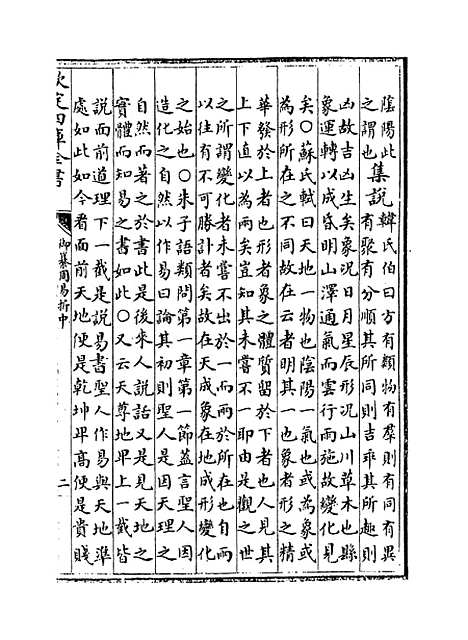 蔭陽此
之謂也 集說 韓氏伯曰方有類物有羣則有同有異
有聚有分順其所同則吉乖其所趣則
凶故吉凶生矣象況日月星辰形況山川草木也縣
象運轉以成昏明山澤通氣而雲行雨施故變化見
矣○蘇氏軾曰天地一物也陰陽一氣也或為象或
為形所在之不同故在云者明其一也象者形之精
華發於上者也形者象之體質留於下者也人見其
上下直以為兩矣豈知其未嘗不一耶由是觀之世
之所謂變化者未嘗不出於一而兩於所在也自兩
以往有不可勝計者矣故在天成象在地成形變化
之始也○朱子語類問第一章第一節蓋言聖人因
造化之自然以作易曰論其初則聖人是因天理之
自然而著之於書此是後來人說話又是見天地之
實體而知易之書如此○又云天尊地卑上一截皆
說面前道理下一截是說易書聖人作易與天地準
處如此如今看面前天地便是乾坤卑高便是貴賤
欽定四庫全書
御纂周易折中
二